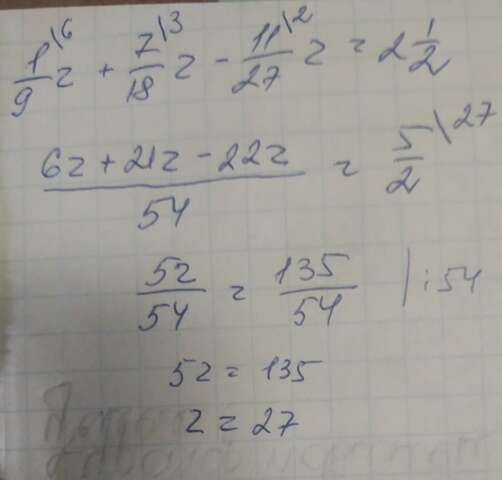 1/9 \6 z + 7/18 \3 z - 11/27 \2 z = 2 1/2
(6z + 21z - 22z)/54 = 5/2 \27
5z/54 = 135/54 | : 54
5z = 135
z = 27